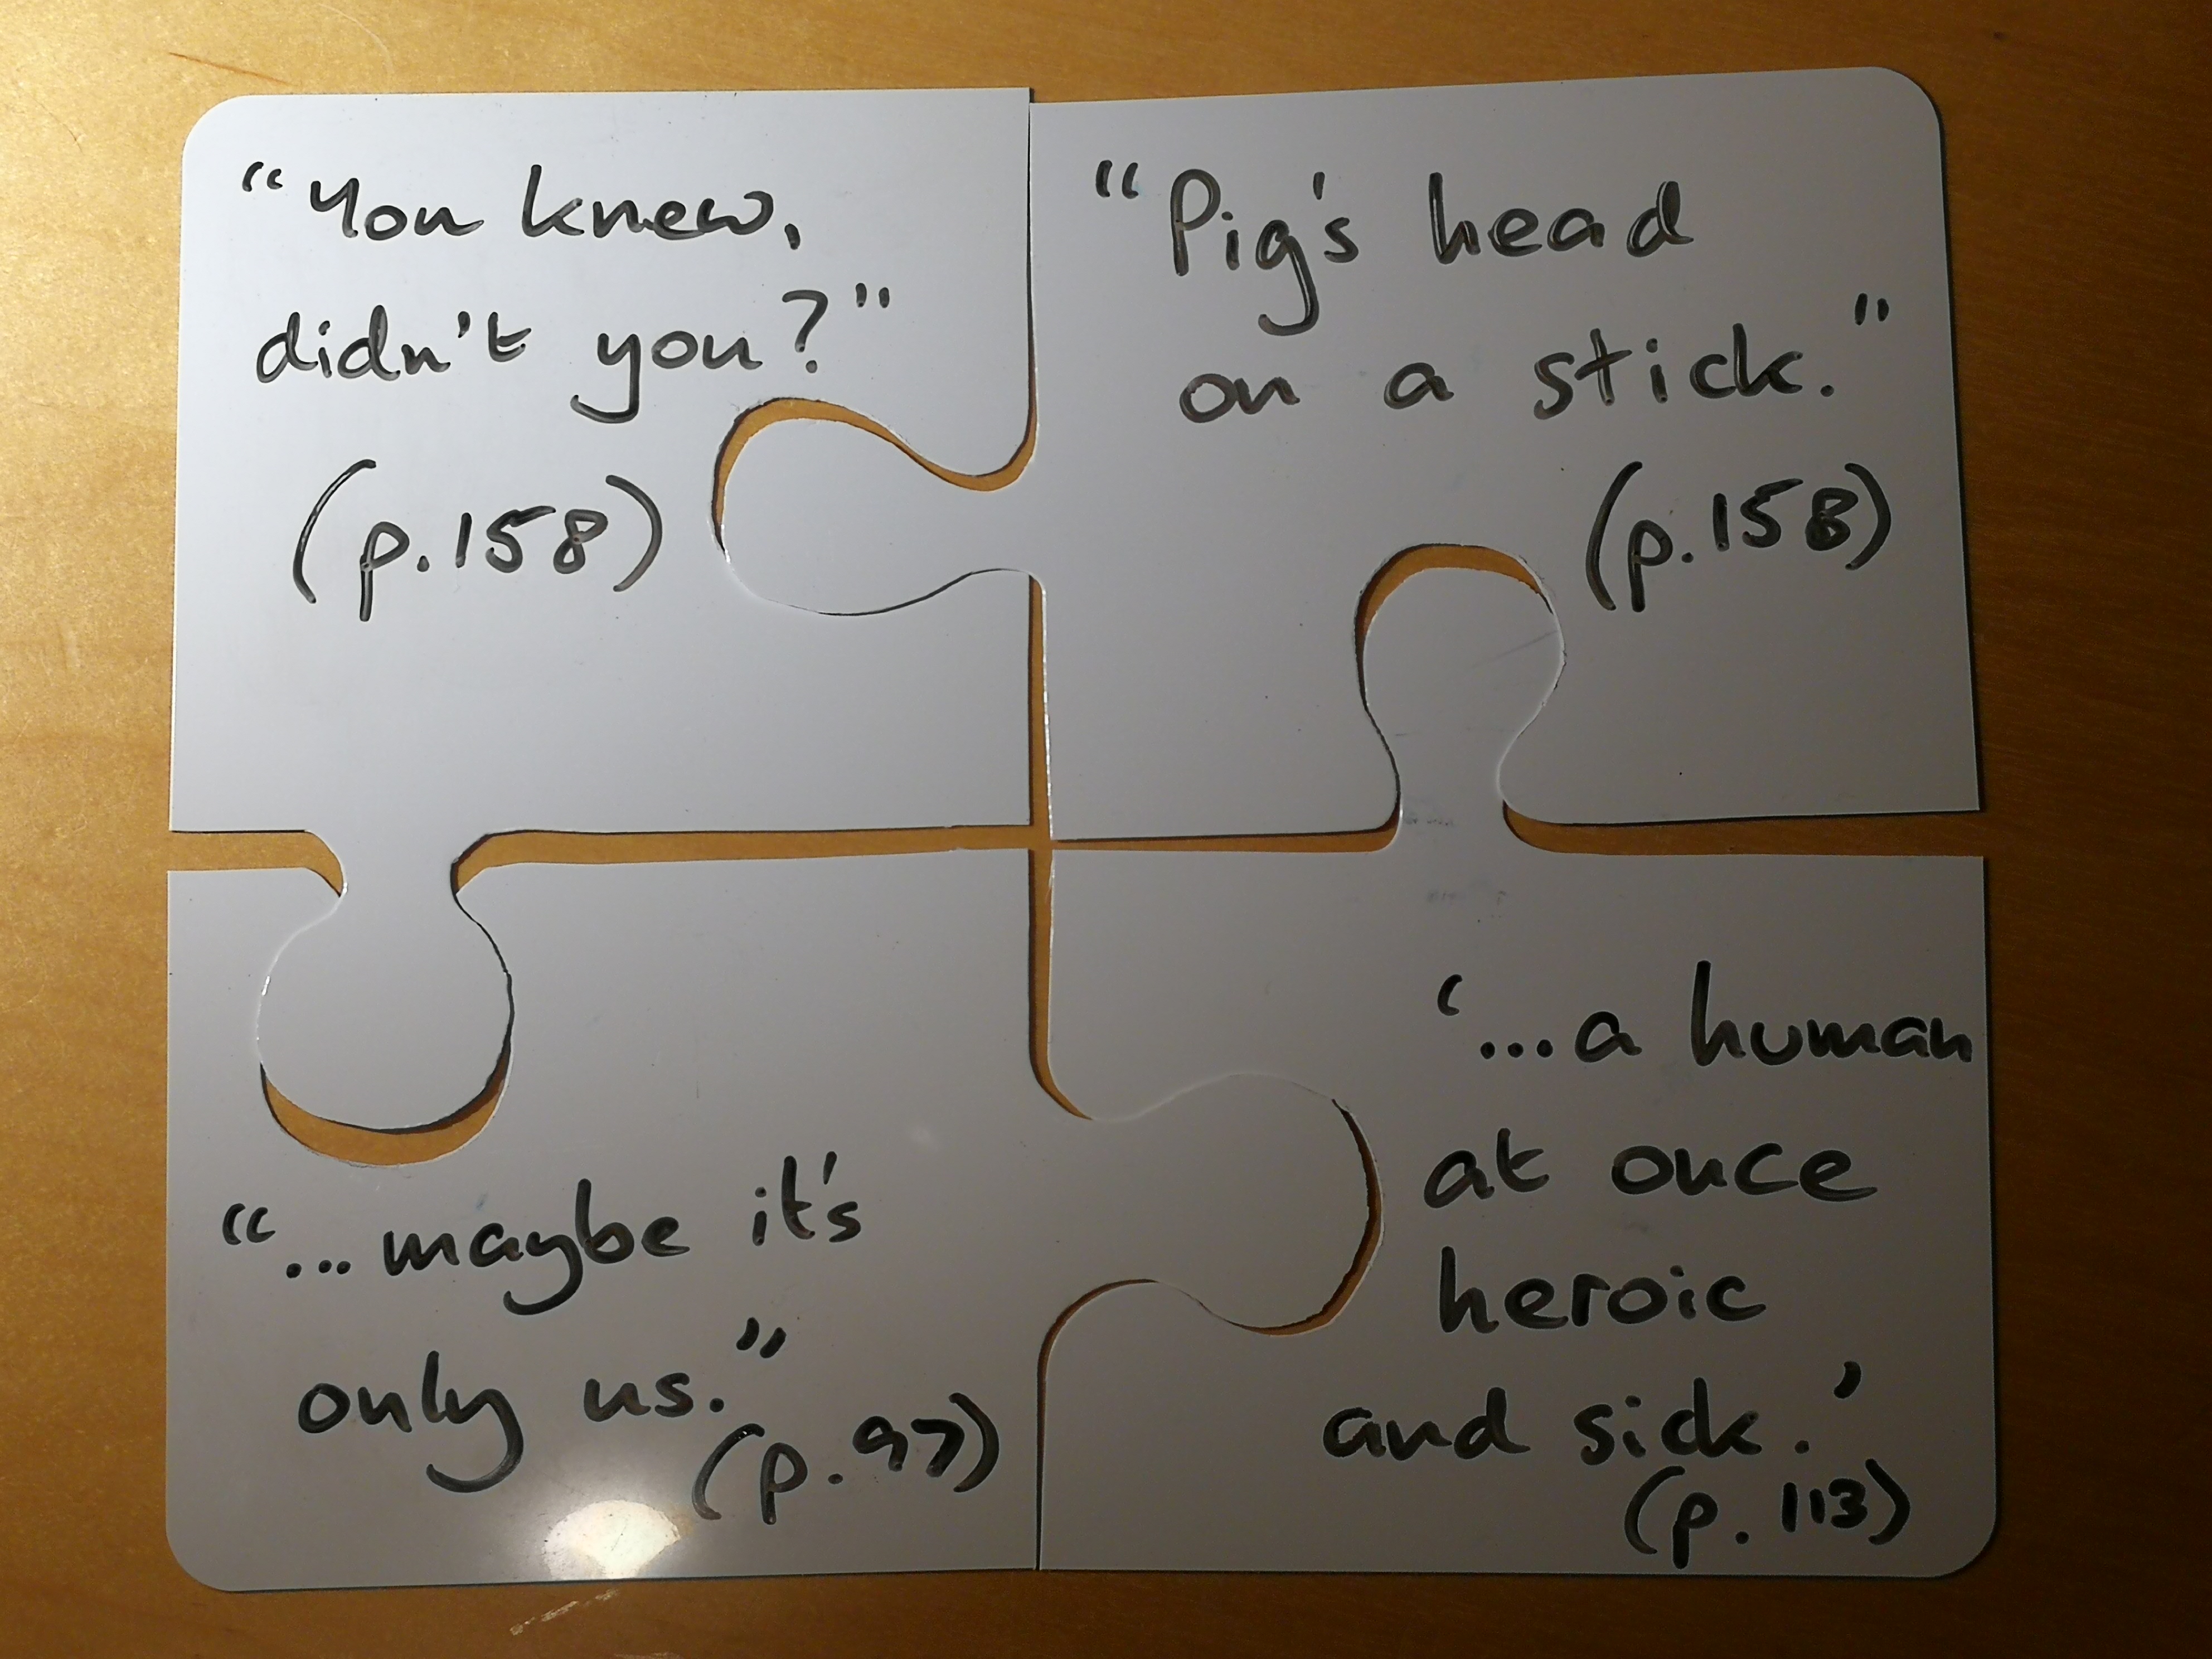 "You knew,
didn't you?"
(p.158)
"Pig's head
on a stick."
(p.158)
"...maybe it's
only us."
(p.97)
'...a human
at once
heroic
and sick.'
(p.113)